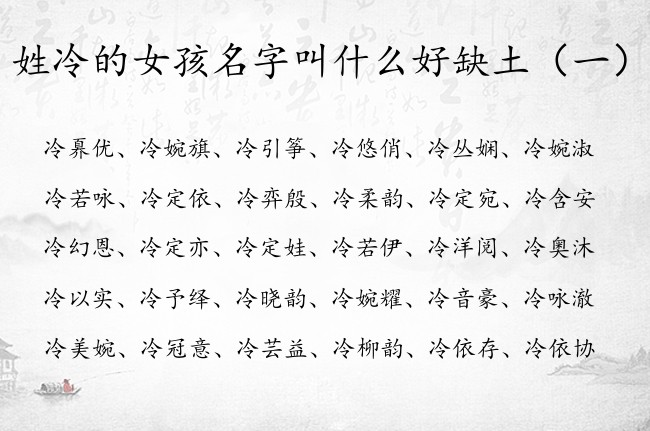 姓冷的女孩名字叫什么好缺土（一）
冷奡优、冷婉旗、冷引筝、冷悠俏、冷丛娴、冷婉淑
冷若咏、冷定依、冷弈殷、冷柔韵、冷定宛、冷含安
冷幻恩、冷定亦、冷定娃、冷若伊、冷洋阅、冷奥沐
冷以实、冷予绎、冷晓韵、冷婉耀、冷音豪、冷咏澈
冷美婉、冷冠意、冷芸益、冷柳韵、冷依存、冷依协